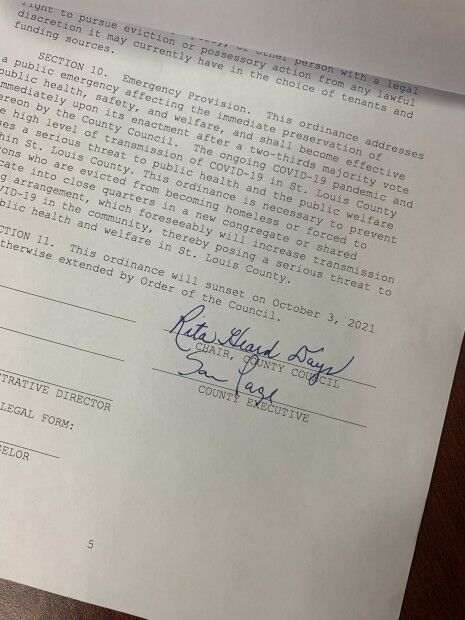 right to pursue eviction or possessory action from any lawful
or other person with a legal
discretion it may currently have in the choice of tenants and
funding sources.
SECTION 10. Emergency Provision. This ordinance addresses
a public emergency affecting the immediate preservation of
public health, safety, and welfare, and shall become effective
mmediately upon its enactment after a two-thirds majority vote
ereon by the County Council. The ongoing COVID-19 pandemic and
e high level of transmission of COVID-19 in St. Louis County
es a serious threat to public health and the public welfare
hin St. Louis County. This ordinance is necessary to prevent
ons who are evicted from becoming homeless or forced to
cate into close quarters in a new congregate or shared
g arrangement, which foreseeably will increase transmission
VID-19 in the community, thereby posing a serious threat to
blic health and welfare in St. Louis County.
CTION 11. This ordinance will sunset on October 3, 2021
therwise extended by Order of the Council.
Rita Heard Days
CHAIR, COUNTY COUNCIL
Sam Page
COUNTY EXECUTIVE
TRATIVE DIRECTOR
LEGAL FORM:
ELOR
5